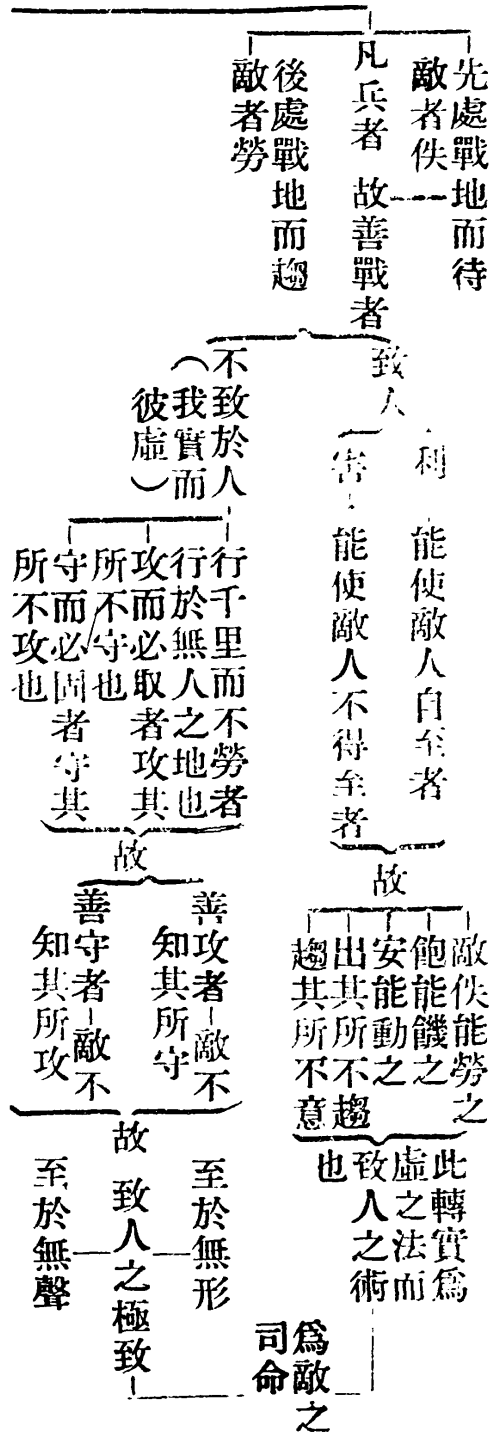 先處戰地而待
敵者佚
凡兵者
後處戰地而趨
敵者勞
故善戰者
致人
利
能使敵人自至者
害
能使敵人不得至者
故
敵佚能勞之
飽能饑之
安能動之
出其所不趨
趨其所不意
此轉實爲
虛之法而
致人之術
也
不致於人
(我實而
彼虛)
行千里而不勞者
行於無人之地也
攻而必取者攻其
所不守也
守而必固者守其
所不攻也
故
善攻者
敵不
知其所守
善守者
敵不
知其所攻
故
至於無形
至於無聲
致人之極致
爲敵之
司命